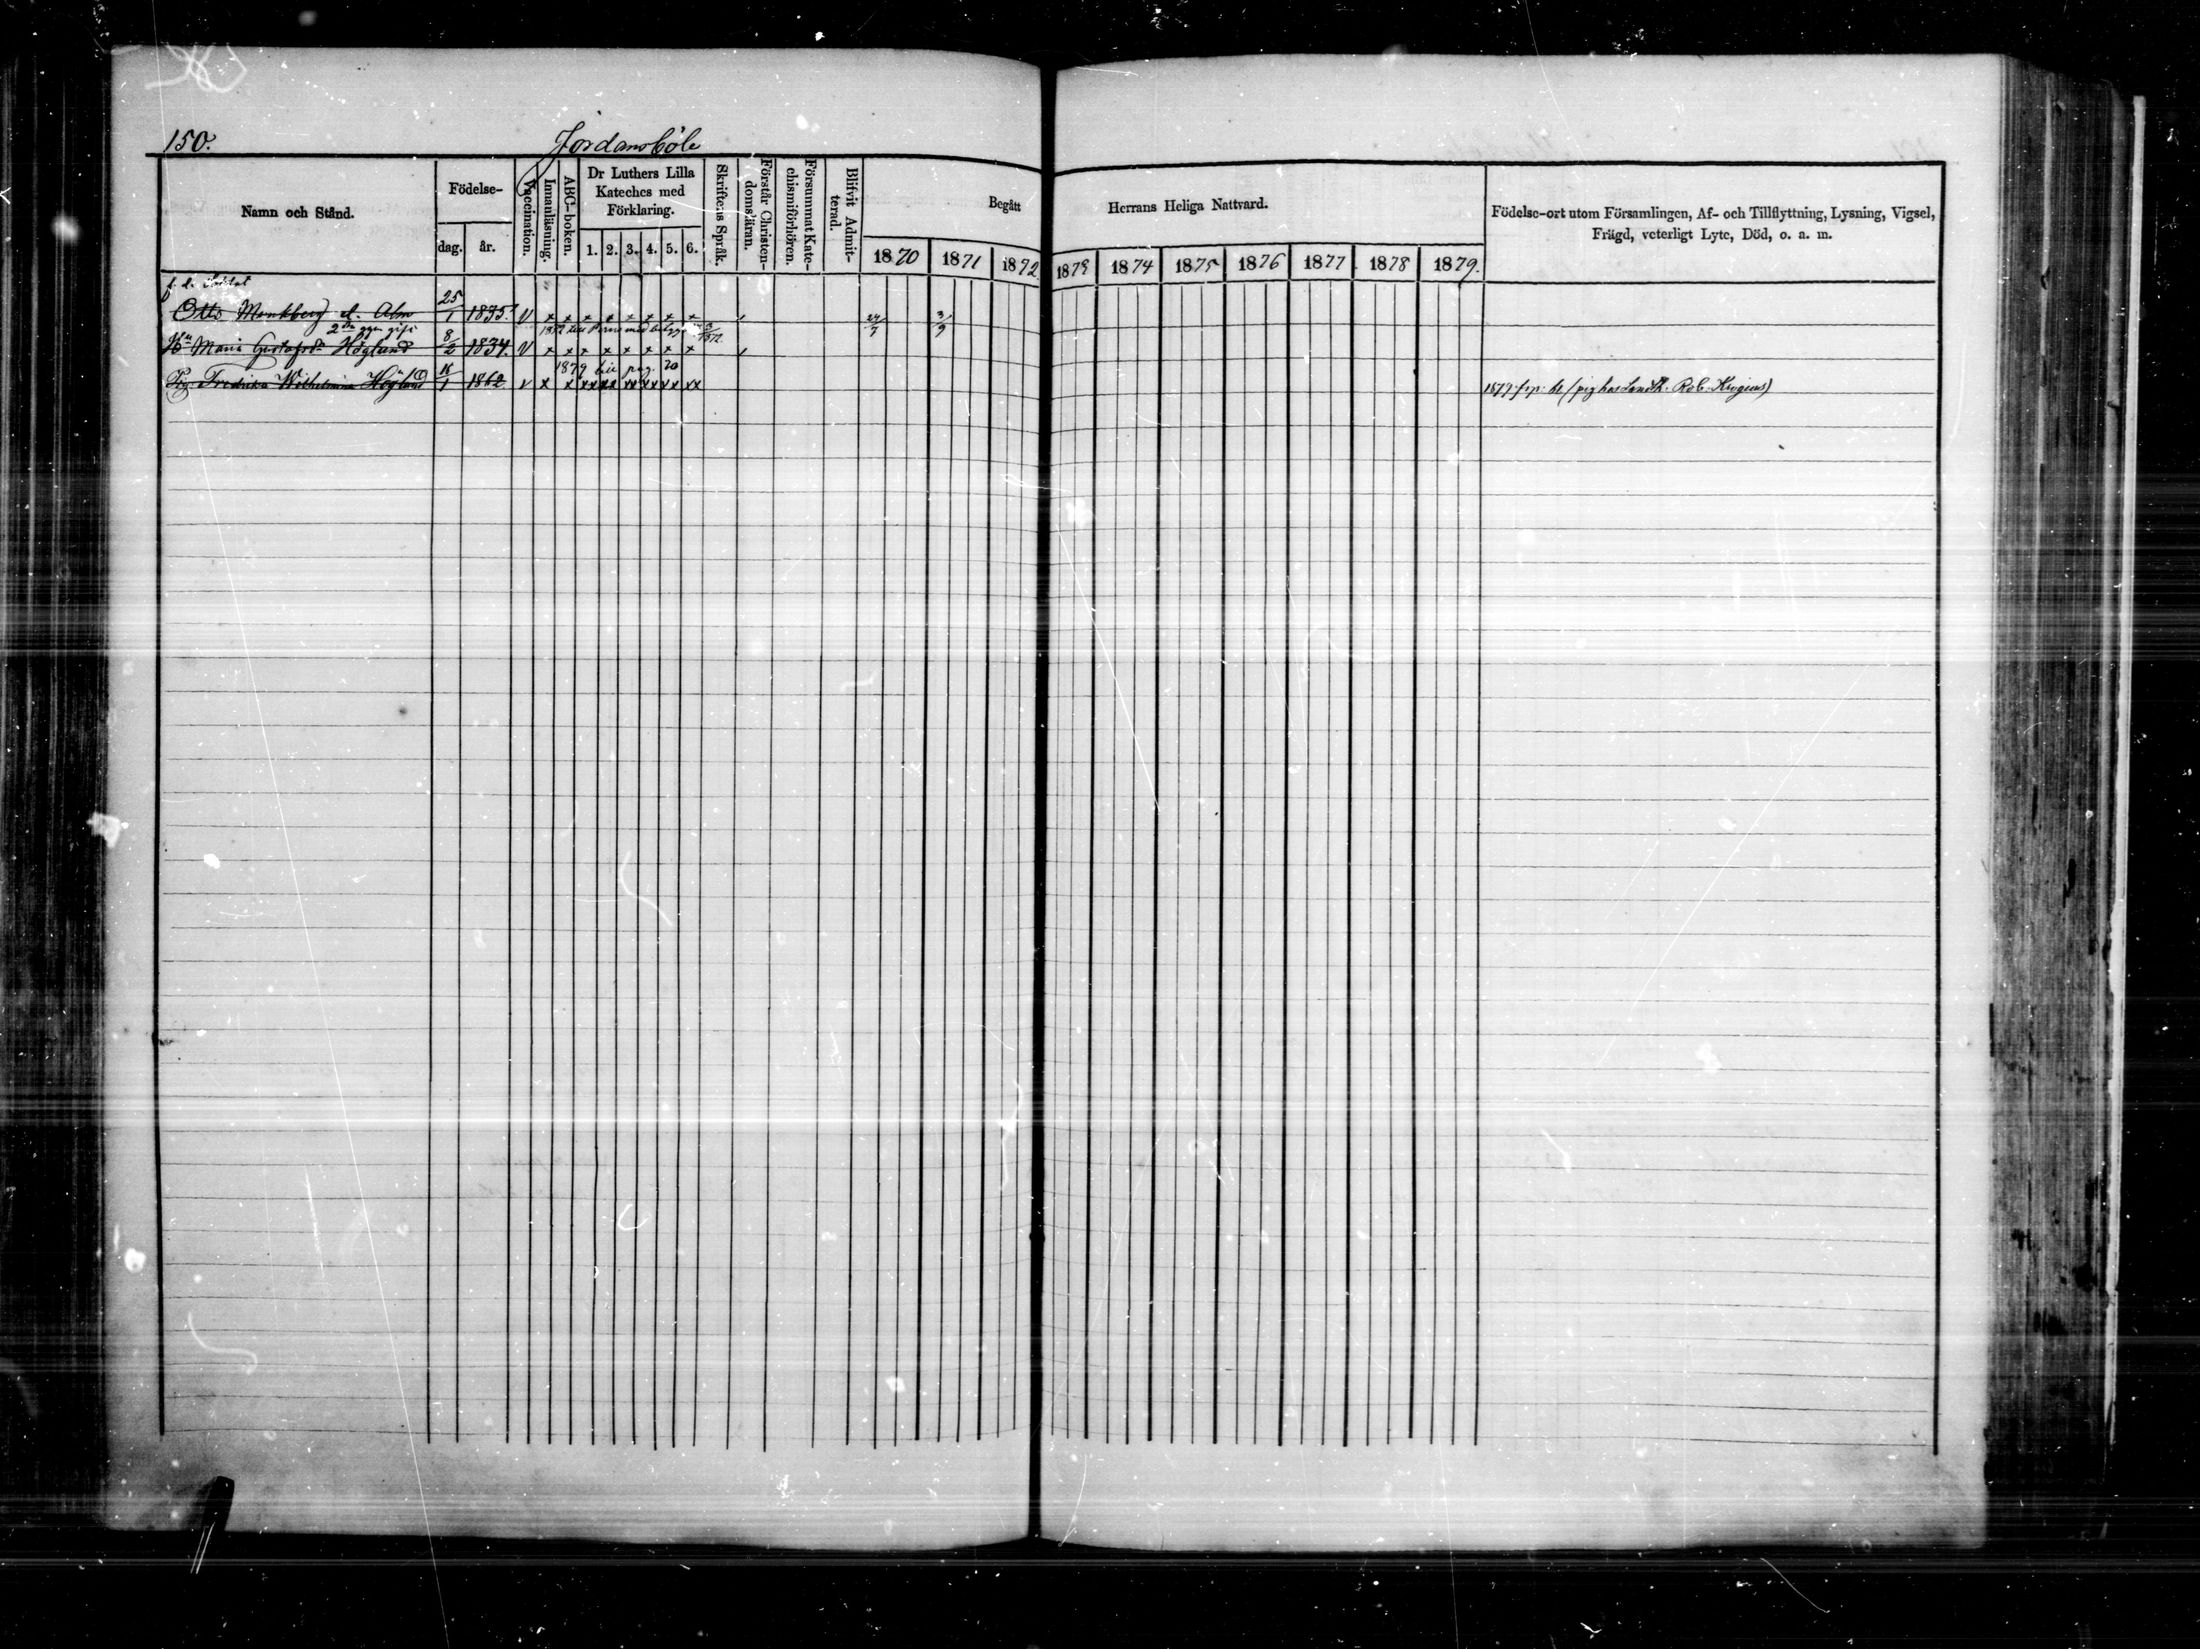 150.
Jordansböle
Namn och Stånd.
Födelse-
dag.
år.
Vaccination.
Innanläsning.
ABC-boken.
Dr Luthers Lilla
Kateches med
Förklaring.
1. 2. 3. 4. 5. 6.
Skriftens Språk.
Förstår Christen-
doms'äran.
Försummat Kate-
chismiförhören.
Blifvit Admit-
terad.
Begått
Herrans Heliga Nattvard.
1870 1871 1872 1873 1874 1875 1876 1877 1878 1879.
Födelse-ort utom Församlingen, Af- och Tillflyttning, Lysning, Vigsel,
Frägd, veterligt Lyte, Död, o. a. m.
f. d. Soldat
Otto Munkberg el. Alm 25/1 1835. V x x x x x x x x 24/7 3/9
2dra ggn gift 1872 till Perno med betyg
Hu Maria Gustafsdr Höglund 8/2 1834. V x x x x x x x x
1879 till pag. 20
Pig. Fredrika Wilhelmina Höglund 18/1 1862 v x x xx xx xx xx xx xx
1879 (pig hos Landth. Rob. Krogius)